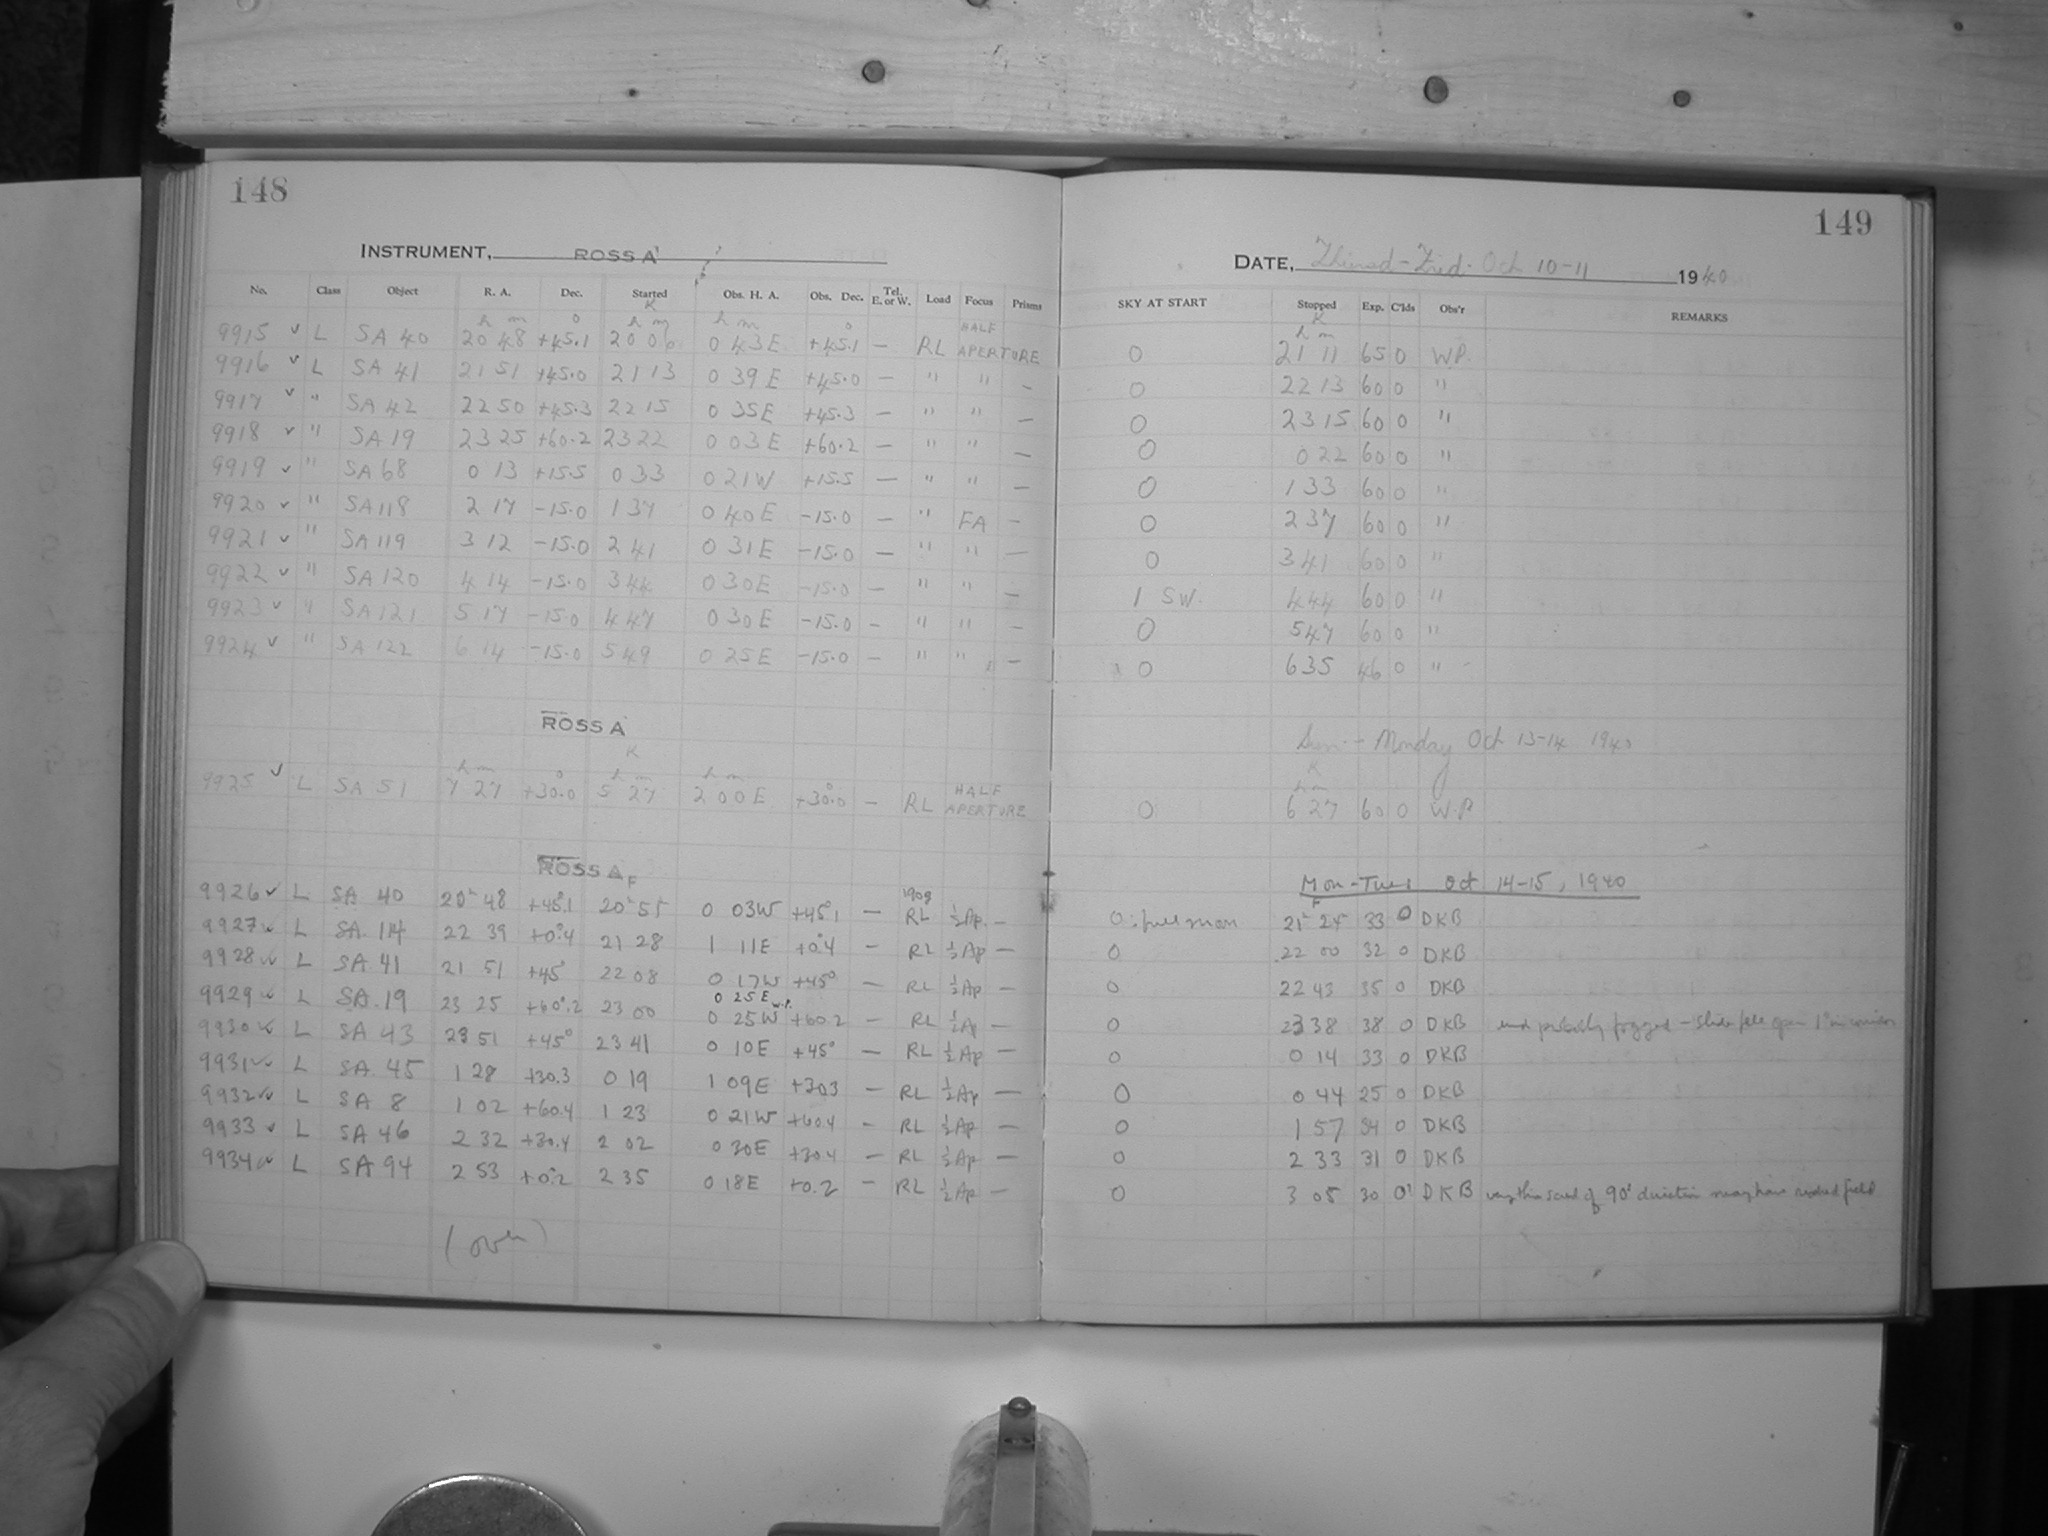 148
INSTRUMENT, ROSS A
No. Class Object R. A. Dec. Started Obs. H. A. Obs. Dec. Tel. E. or W. Load Focus Prisms
K
h m o h m h m o HALF
9915 ✓ L SA 40 20 48 +45.1 20 0 0 43E +45.1 — RL APERTURE
9916 ✓ L SA 41 21 51 +45.0 21 13 0 39 E +45.0 — " " —
9917 ✓ " SA 42 22 50 +45.3 22 15 0 35E +45.3 — " " —
9918 ✓ " SA 19 23 25 +60.2 23 22 0 03E +60.2 — " " —
9919 ✓ " SA 68 0 13 +15.5 0 33 0 21W +15.5 — " " —
9920 ✓ " SA 118 2 17 -15.0 1 37 0 40E -15.0 — " FA —
9921 ✓ " SA 119 3 12 -15.0 2 41 0 31E -15.0 — " " —
9922 ✓ " SA 120 4 14 -15.0 3 44 0 30E -15.0 — " " —
9923 ✓ " SA 121 5 17 -15.0 4 47 0 30E -15.0 — " " —
9924 ✓ " SA 122 6 14 -15.0 5 49 0 25E -15.0 — " " —
ROSS A
K
h m o h m h m o HALF
9925 ✓ L SA 51 7 27 +30.0 5 27 2 00E +30.0 — RL APERTURE
ROSS A F
1909
9926 ✓ L SA 40 20h 48 +45°.1 20h 55 0 03W +45°.1 — RL ½Ap. —
9927 ✓ L SA 114 22 39 +0°.4 21 28 1 11E +0.4 — RL ½Ap —
9928 ✓ L SA 41 21 51 +45° 22 08 0 17W +45° — RL ½Ap —
0 25E W.P.
9929 ✓ L SA 19 23 25 +60°.2 23 00 0 25W +60.2 — RL ½Ap —
9930 ✓ L SA 43 23 51 +45° 23 41 0 10E +45° — RL ½Ap —
9931 ✓ L SA 45 1 28 +30.3 0 19 1 09E +30.3 — RL ½Ap —
9932 ✓ L SA 8 1 02 +60.4 1 23 0 21W +60.4 — RL ½Ap —
9933 ✓ L SA 46 2 32 +30.4 2 02 0 30E +30.4 — RL ½Ap —
9934 ✓ L SA 94 2 53 +0.2 2 35 0 18E +0.2 — RL ½Ap —
(over)
149
DATE, Oct 10-11 1940
SKY AT START Stopped Exp. C'lds Obs'r REMARKS
K
h m
0 21 11 65 0 W.P.
0 22 13 60 0 "
0 23 15 60 0 "
0 0 22 60 0 "
0 1 33 60 0 "
0 2 37 60 0 "
0 3 41 60 0 "
1 SW. 4 44 60 0 "
0 5 47 60 0 "
0 6 35 46 0 "
Sun - Monday Oct 13-14 1940
K
h m
0 6 27 60 0 W.P
Mon-Tues Oct 14-15, 1940
F
0: full moon 21h 28 33 0 DKB
0 22 00 32 0 DKB
0 22 43 35 0 DKB
0 23 38 38 0 DKB end probably fogged - slide fell open 1" in
0 0 14 33 0 DKB
0 0 44 25 0 DKB
0 1 57 34 0 DKB
0 2 33 31 0 DKB
0 3 05 30 0 DKB of 90° may have field